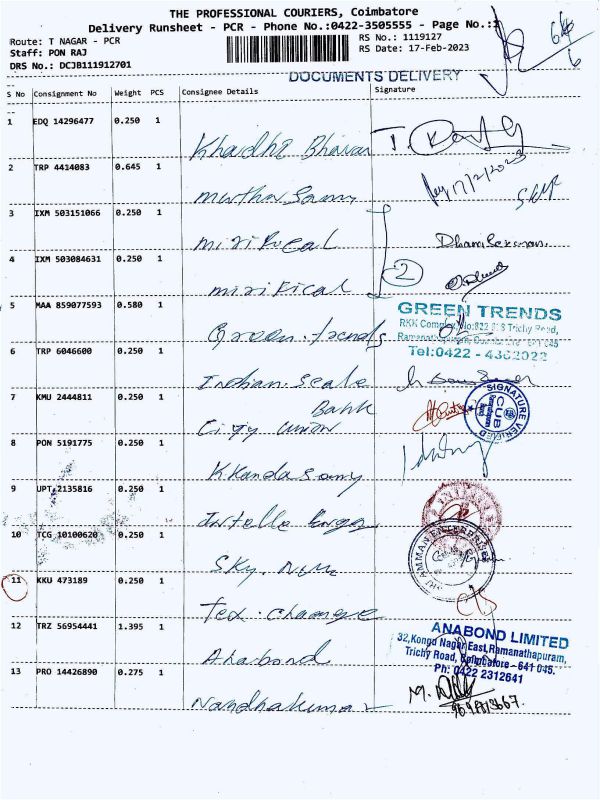 THE PROFESSIONAL COURIERS, Coimbatore
Delivery Runsheet - PCR - Phone No.:0422-3505555 - Page No.:1
Route: T NAGAR - PCR
Staff: PON RAJ
DRS No.: DCJB111912701
RS No.: 1119127
RS Date: 17-Feb-2023
DOCUMENTS DELIVERY
S No Consignment No Weight PCS Consignee Details Signature
1 EDQ 14296477 0.250 1
2 TRP 4414083 0.645 1
muthusamy
17/2/2023
3 IXM 503151066 0.250 1
Dhanasekaran
4 IXM 503084631 0.250 1
2
5 MAA 859077593 0.580 1
Green trends
GREEN TRENDS
Tel:0422 - 4362022
6 TRP 6046600 0.250 1
Indian Scale
7 KMU 2444811 0.250 1
Bank
City union
SIGNATURE VERIFIED
CUB
8 PON 5191775 0.250 1
K Kandasamy
9 UPT 2135816 0.250 1
10 TCG 10100620 0.250 1
11 KKU 473189 0.250 1
12 TRZ 56954441 1.395 1
Anabond
ANABOND LIMITED
32,Kongu Nagar East,Ramanathapuram,
Trichy Road, Coimbatore - 641 045.
Ph: 0422 2312641
13 PRO 14426890 0.275 1
Nandhakumar